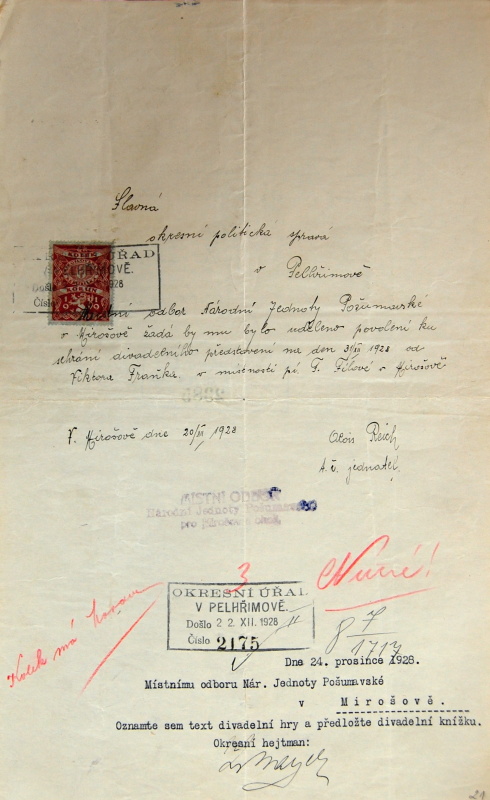 Slavná
okresní politická správa
v Pelhřimově
OKRESNÍ ÚŘAD
V PELHŘIMOVĚ.
Došlo 1928
Číslo
KOLEK
Místní odbor Národní Jednoty Pošumavské
v Mirošově žádá by mu bylo uděleno povolení ku
sehrání divadelního představení na den 31/XII 1928 od
Viktora Fraňka v místnosti pí. F. Fílové v Mirošově
V. Mirošově dne 20/XII 1928
Alois Reich
t. č. jednatel.
MÍSTNÍ ODBOR
Národní Jednoty Pošumavské
pro Mirošov a okolí,
3
Nutné!
Kolek má
OKRESNÍ ÚŘAD
V PELHŘIMOVĚ.
Došlo 2 2. XII. 1928
Číslo 2175
8 7
1717
Dne 24. prosince 1928.
Místnímu odboru Nár. Jednoty Pošumavské
v Mirošově.
Oznamte sem text divadelní hry a předložte divadelní knížku.
Okresní hejtman:
21